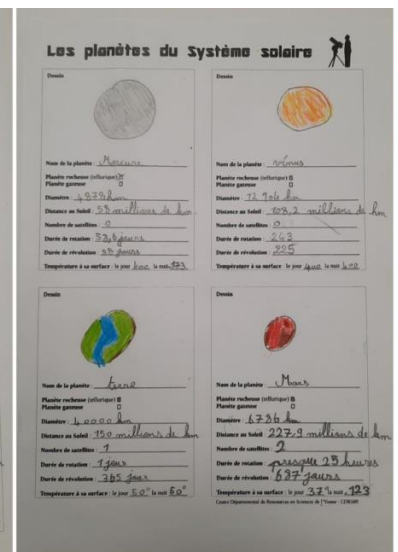 Les planètes du Système solaire
Dessin
Nom de la planète : Mercure
Planète rocheuse (tellurique)
Planète gazeuse
Diamètre : 4878 km
Distance au Soleil : 58 millions de km
Nombre de satellites : 0
Durée de rotation : 58,6 jours
Durée de révolution : 88 jours
Température à sa surface : le jour la nuit
Dessin
Nom de la planète : vénus
Planète rocheuse (tellurique)
Planète gazeuse
Diamètre : 12 104 km
Distance au Soleil : 108,2 millions de km
Nombre de satellites : 0
Durée de rotation : 243
Durée de révolution : 225
Température à sa surface : le jour 400 la nuit 400
Dessin
Nom de la planète : terre
Planète rocheuse (tellurique)
Planète gazeuse
Diamètre : 40000 km
Distance au Soleil : 150 millions de km
Nombre de satellites : 1
Durée de rotation : 1 jour
Durée de révolution : 365 jours
Température à sa surface : le jour 50° la nuit 50°
Dessin
Nom de la planète : Mars
Planète rocheuse (tellurique)
Planète gazeuse
Diamètre : 6786 km
Distance au Soleil : 227,9 millions de km
Nombre de satellites : 2
Durée de rotation : presque 25 heures
Durée de révolution : 687 jours
Température à sa surface : le jour 37° la nuit -123
Centre Départemental de Ressources en Sciences de l'Yonne - CDRS89